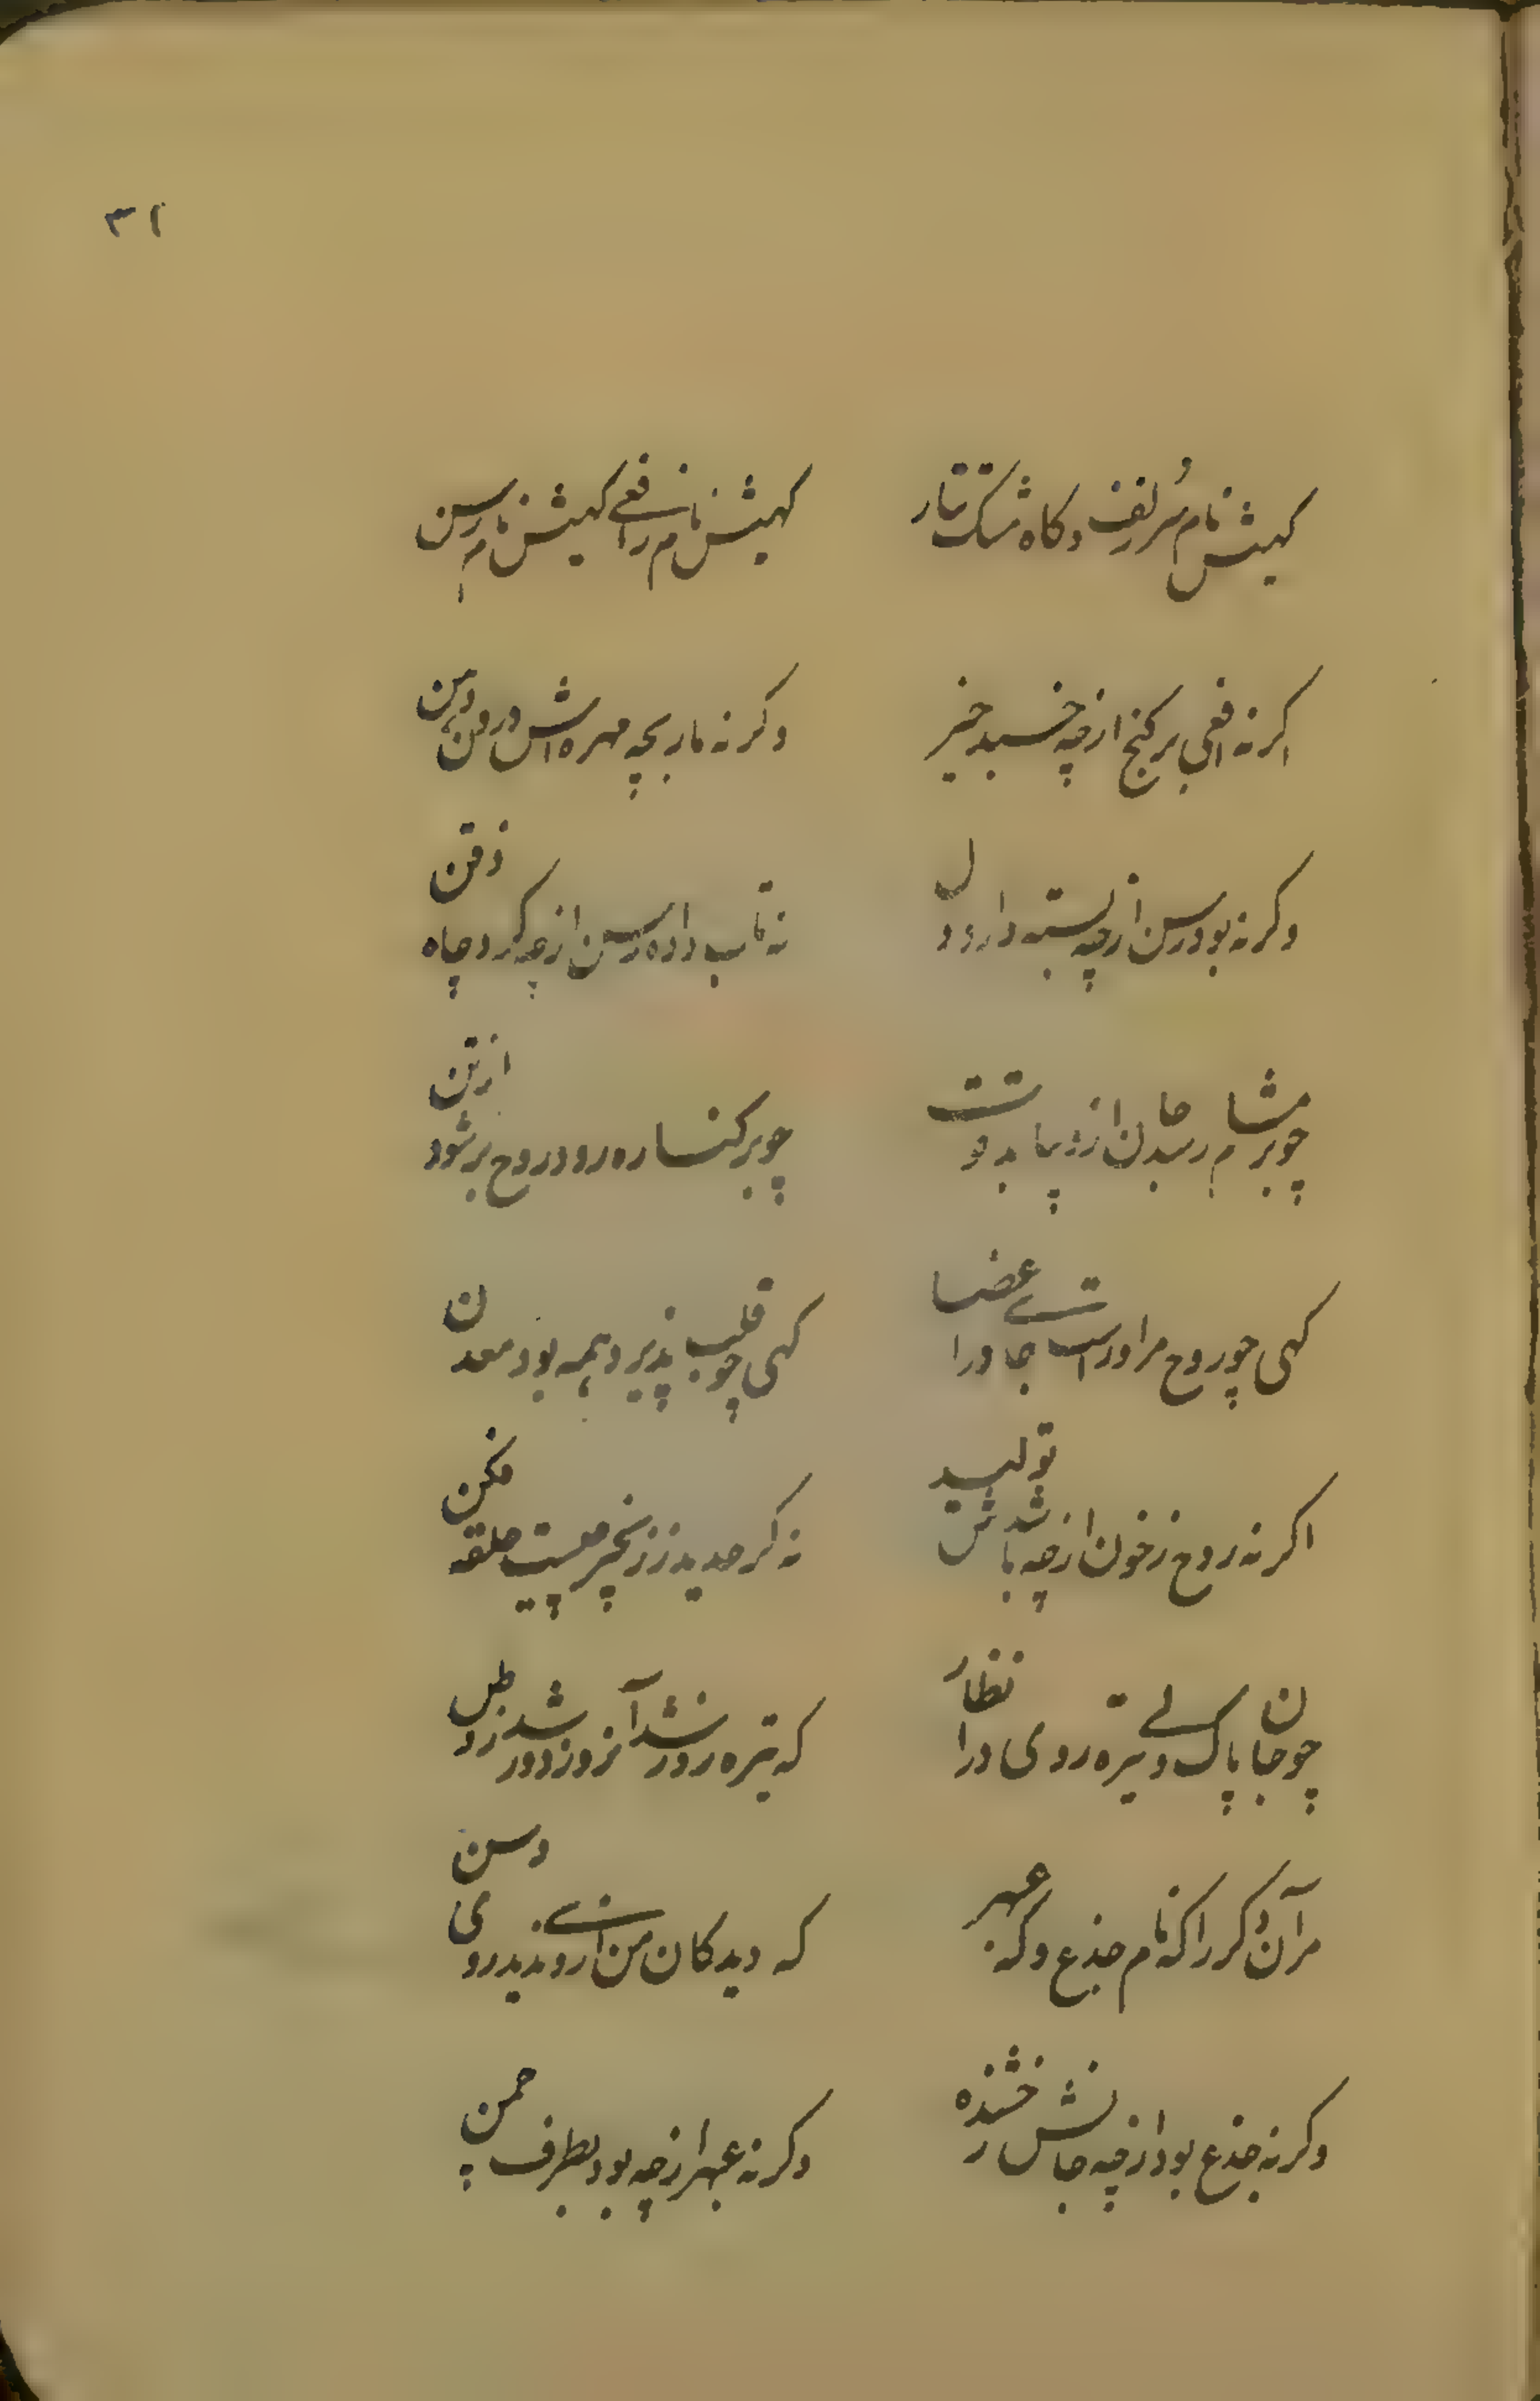 ۳۱
کهیش نام سر زلف و کاه مشک تتار
کهیش نام افعی کهیش نام رسن
اکر نه افعی بر کنج از چه خسبد خیر
وکر نه مار بچه مهره اش درون دهن
وکر نه بود رسن از چه بسته دارد دل
نه تاب داده رسن از چه کرد چاه ذقن
چو بر مشام رسد جان از و پیابد قوت
چو بر کناره رود روح بر شود از تن
کهی چو روح مر اوراست بی عضا جا ورا
کهی چو قلب پذیرد همه بود معدن
اکر نه روح ز خون از چه باشدش تولید
نه کر حدید ز زنجیر چیست حلقه مکن
چو جان پاک ولی تیره روی ورا نظار
که تیره روز نشد آنروز دور شد ز وطن
مر آن دکر را که نام جذع و که عبهر
که دیدکان من از وی ندید روی وسن
وکر نه جذع بود از چه جانش رخشنده
وکر نه عبهر از چه بود بطرف چمن